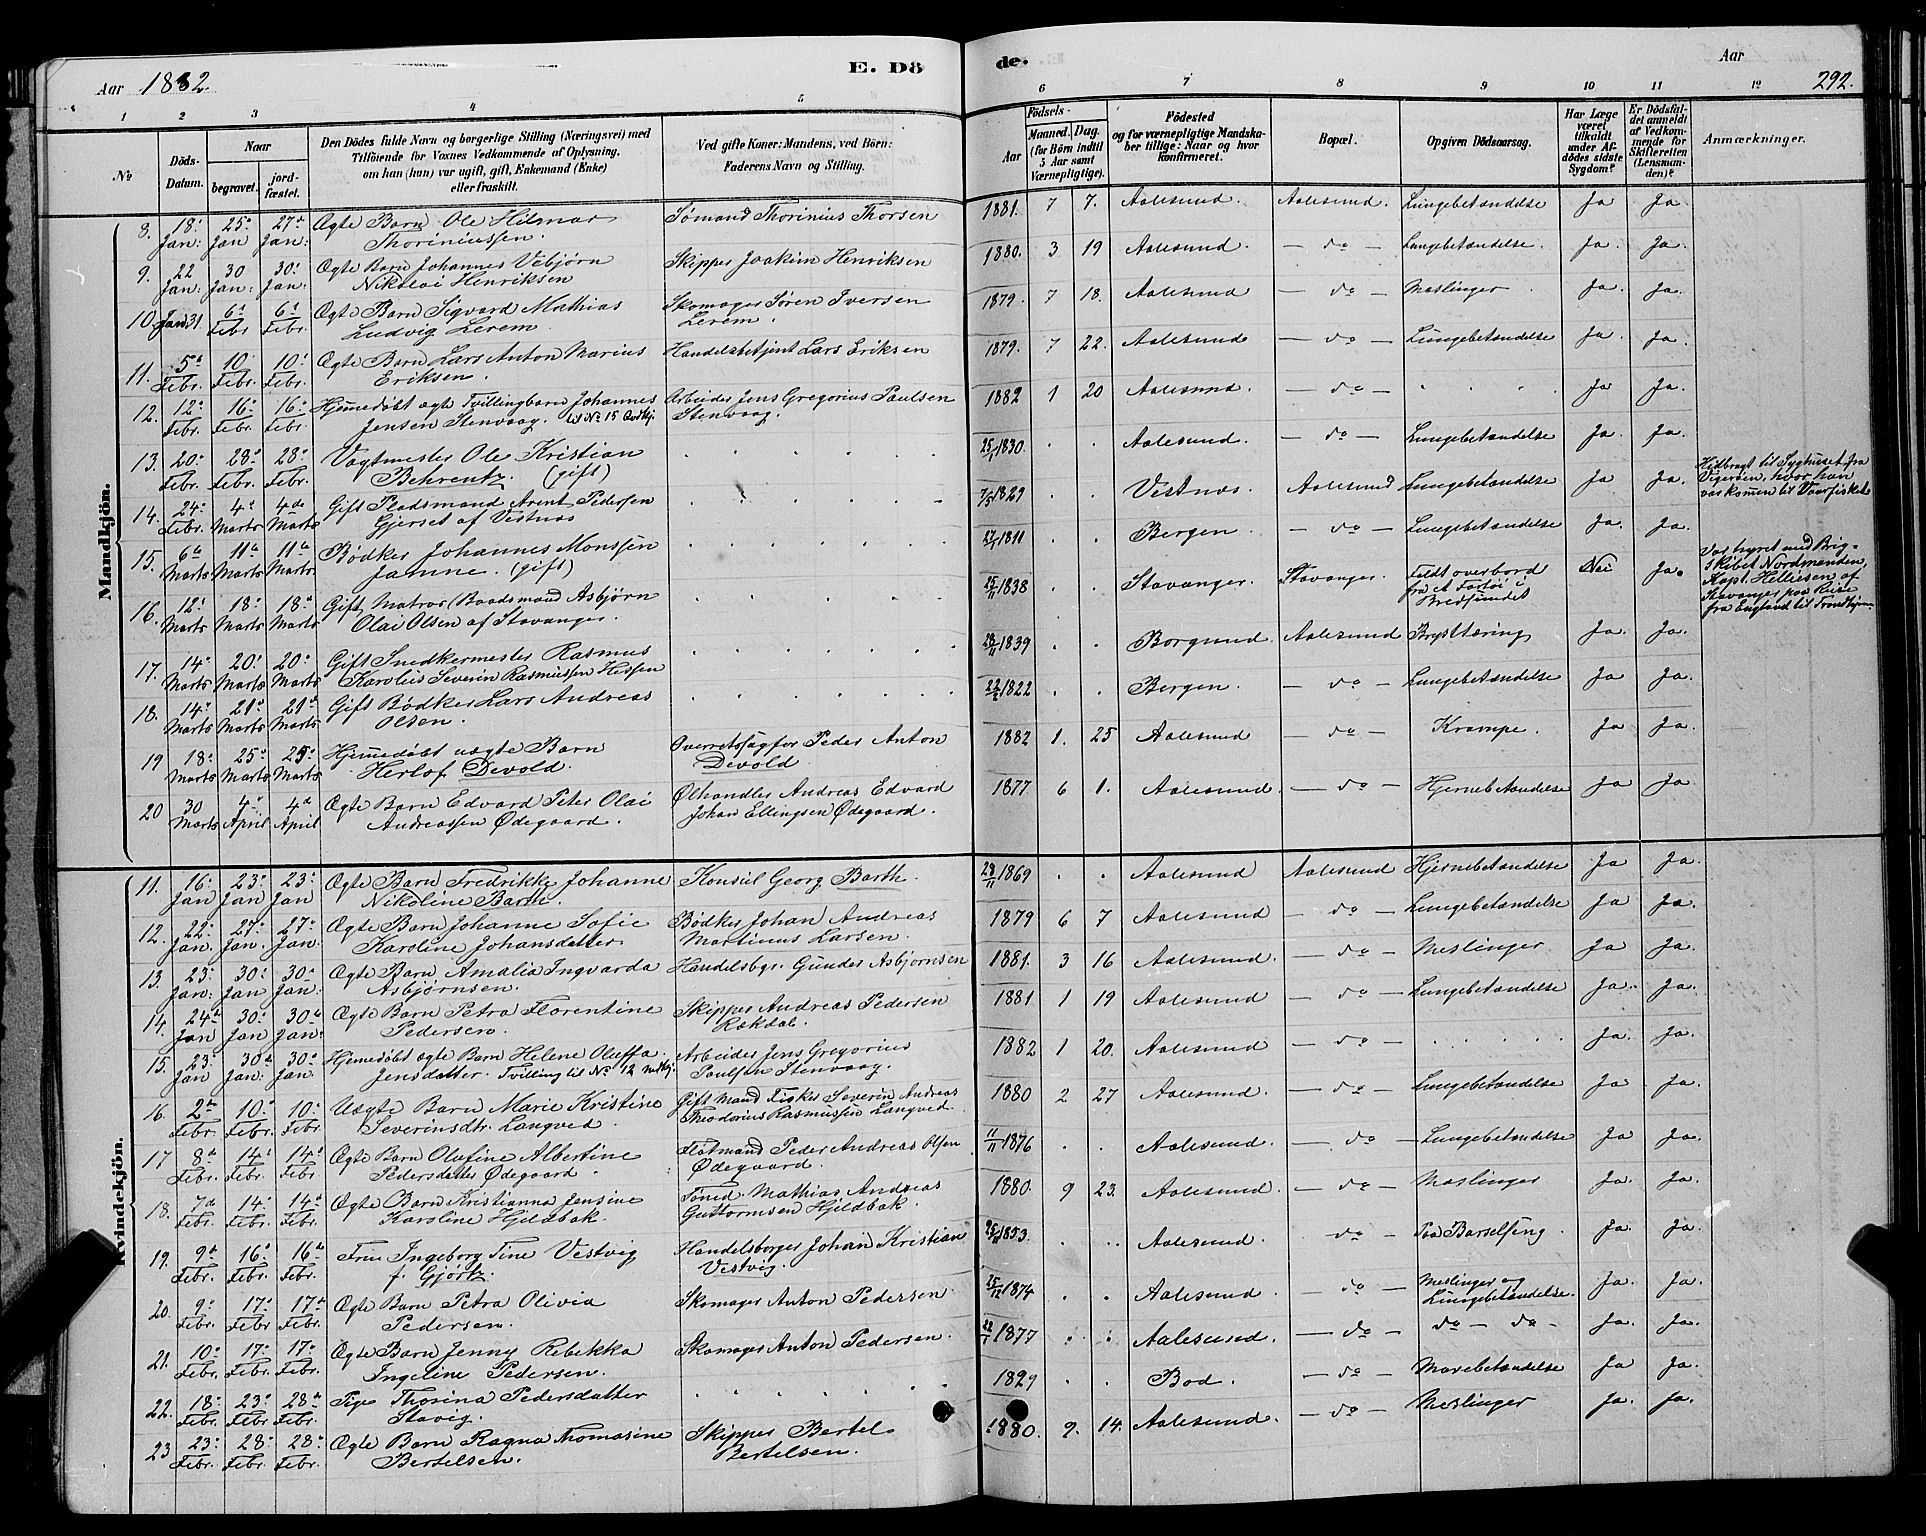 Aar 1882.
E. Dø
de.
Aar
292.
1 2 3 4 5 6 7 8 9 10 11 12
No
Døds-Datum.
Naar
begravet.
jord-fæstet.
Den Dødes fulde Navn og borgerlige Stilling (Næringsvei) med
Tilføiende for Voxnes Vedkommende af Oplysning,
om han (hun) var ugift, gift, Enkemand (Enke)
eller fraskilt.
Ved gifte Koner: Mandens, ved Børn:
Faderens Navn og Stilling.
Fødsels-
Aar
Maaned. Dag.
(for Børn indtil
5 Aar samt
Værnepligtige).
Fødested
og for værnepligtige Mandska-
ber tillige: Naar og hvor
konfirmeret.
Bopæl.
Opgiven Dødsaarsag.
Har Læge
været
tilkaldt
under Af-
dødes sidste
Sygdom?
Er Dødsfal-
det anmeldt
af Vedkom-
mende for
Skifteretten
(Lensman-
den)?
Anmærkninger.
Mandkjön.
8. 18. Jan: 25. Jan 27. Jan: Ægte Barn Ole Hilmar Thoriniussen. Sømand Thorinius Thorsen 1881. 7 7. Aalesund. Aalesund. Lungebetændelse Ja Ja.
9. 22 Jan: 30 Jan: 30. Jan: Ægte Barn Johannes Vebjørn Nikolai Henriksen Skipper Joakim Henriksen 1880. 3 19 Aalesund. — do — Lungebetændelse. Ja. Ja.
10. Jan 31. 6te Febr 6te Febr. Ægte Barn Sigvard Mathias Ludvig Lerem. Skomager Søren Iversen Lerem. 1879. 7 18. Aalesund — do — Meslinger. Ja. Ja.
11. 5te Febr. 10. Febr. 10. Febr. Ægte Barn Lars Anton Marius Eriksen. Handelsbetjent Lars Eriksen 1879. 7 22. Aalesund — do — Lungebetændelse Ja. Ja.
12. 12. Febr. 16. Febr. 16. Febr. Hjemedøbt ægte Tvillingbarn Johannes Jensen Stenvaag. til No 15 Qvdkj. Arbeider Jens Gregorius Paulsen Stenvaag. 1882 1 20 Aalesund. — do — Ja Ja.
13. 20. Febr. 28. Febr. 28. Febr. Vægtmester Ole Kristian Behrentz. (gift) 25/1 1830. Aalesund. — do — Lungebetændelse Ja. Ja.
14. 24. Febr. 4. Marts 4de Marts Gift Pladsmand Arent Pedersen Gjerset af Vestnæs 7/5 1829 Vestnæs. Aalesund Lungebetændelse Ja Ja. Hidbragt til Syghuset fra Vigerøen, hvor han var kommen til Vaarfisket
15. 6te Marts 11te Marts 11te Marts Bødker Johannes Monssen Jamne. (gift) 27/1 1811 Bergen. — do — Lungebetændelse Ja. Ja.
16. 12. Marts 18. Marts 18. Marts Gift Matros (Baadsmand) Asbjørn Olai Olsen af Stavanger. 25/11 1838 Stavanger. Stavanger. Faldt overbord fra et Fartøi i Bredsundet Nei Ja. Var hyret med Brig-Skibet Nordmanden, Kapt. Helliesen, af Stavanger paa Reise fra England til Trondhjem
17. 14. Marts 20. Marts 20. Marts Gift Snedkermester Rasmus Karolius Severin Rasmussen Hessen 28/11 1839 Borgund. Aalesund Brysttæring Ja. Ja.
18. 14. Marts 21. Marts 21. Marts Gift Bødker Lars Andreas Olsen. 22/2 1822 Bergen. — do — Lungebetændelse Ja Ja.
19 18. Marts 25. Marts 25. Marts Hjemedøbt uægte Barn Herlof Devold. Overretssagfør Peder Anton Devold 1882 1. 25 Aalesund — do — Krampe. Ja Ja.
20 30 Marts 4. April 4de April Ægte Barn Edvard Peter Olai Andreassen Ødegaard. Ølhandler Andreas Edvard Johan Ellingsen Ødegaard. 1877 6 1. Aalesund. — do — Hjernebetændelse Ja Ja.
Kvindekjön.
11. 16. Jan 23. Jan 23. Jan Ægte Barn Fredrikke Johanne Nikoline Barth. Konsul Georg Barth. 28/11 1869 Aalesund Aalesund Hjernebetændelse Ja Ja.
12. 22. Jan. 27. Jan. 27. Jan. Ægte Barn Johanne Sofie Karoline Johansdatter Bødker Johan Andreas Martinus Larsen. 1879 6 7 Aalesund — do — Lungebetændelse Ja Ja.
13. 23. Jan: 30. Jan 30. Jan: Ægte Barn Amalia Ingvarda Asbjørnsen. Handelsbgr. Gunder Asbjørnsen 1881. 3 16 Aalesund. — do — Meslinger Ja Ja.
14. 24de Jan 30. Jan 30te Jan. Ægte Barn Petra Florentine Pedersen. Skipper Andreas Pedersen Rekdal. 1881 1 19 Aalesund — do — Lungebetændelse Ja. Ja.
15. 23. Jan 30te Jan: 30. Jan. Hjemedøbt ægte Barn Helene Oluffa Jensdatter. Tvilling til No 12 Mdkj. Arbeider Jens Gregorius Paulsen Stenvaag. 1882 1 20. Aalesund — do — Ja. Ja.
16. 2den Febr. 10. Febr. 10. Febr. Uægte Barn Marie Kristine Severinsdtr. Langved Gift Mand Fisker Severin Andreas Theodorius Rasmussen Langved. 1880 2 27 Aalesund. — do — Lungebetændelse Ja Ja.
17 8. Febr. 14. Febr. 14. Febr Ægte Barn Olufine Albertine Pedersdatter Ødegaard. Flotmand Peder Andreas Olsen Ødegaard. 11/11 1876 Aalesund. — do — Lungebetændelse Ja Ja
18. 7de Febr. 14. Febr. 14de Febr. Ægte Barn Kristianna Jensine Karoline Hjeldbak. Mathias Andreas Guttormsen Hjeldbak. 1880. 9 23. Aalesund. — do — Meslinger Ja Ja.
19. 9. Febr. 16. Febr. 16. Febr. Fru Ingeborg Tine Vestvig f. Gjørtz. Handelsborger Johan Kristian Vestvig. 25/ 1853. Aalesund. do — Paa Barselseng. Ja. Ja.
20. 9. Febr. 17. Febr 17. Febr. Ægte Barn Petra Olivia Pedersen. Skomager Anton Pedersen 25/12 1874 Aalesund. — do — Meslinger og Lungebetændelse. Ja. Ja.
21. 10. Febr. 17. Febr. 17. Febr. Ægte Barn Jenny Rebekka Ingeline Pedersen. Skomager Anton Pedersen. 22/1 1877 Aalesund. — do — do — do — Ja. Ja.
22. 18. Febr. 23. Febr 28. Febr. Pige Thorina Pedersdatter Stavig. 1829 Bod. — do — Mavebetændelse Ja Ja.
23 23. Febr. 28. Febr. 28. Febr. Ægte Barn Ragna Thomasine Bertelsen. Skipper Bertel Bertelsen. 1880. 9. 14. Aalesund. — do — Meslinger Ja. Ja.